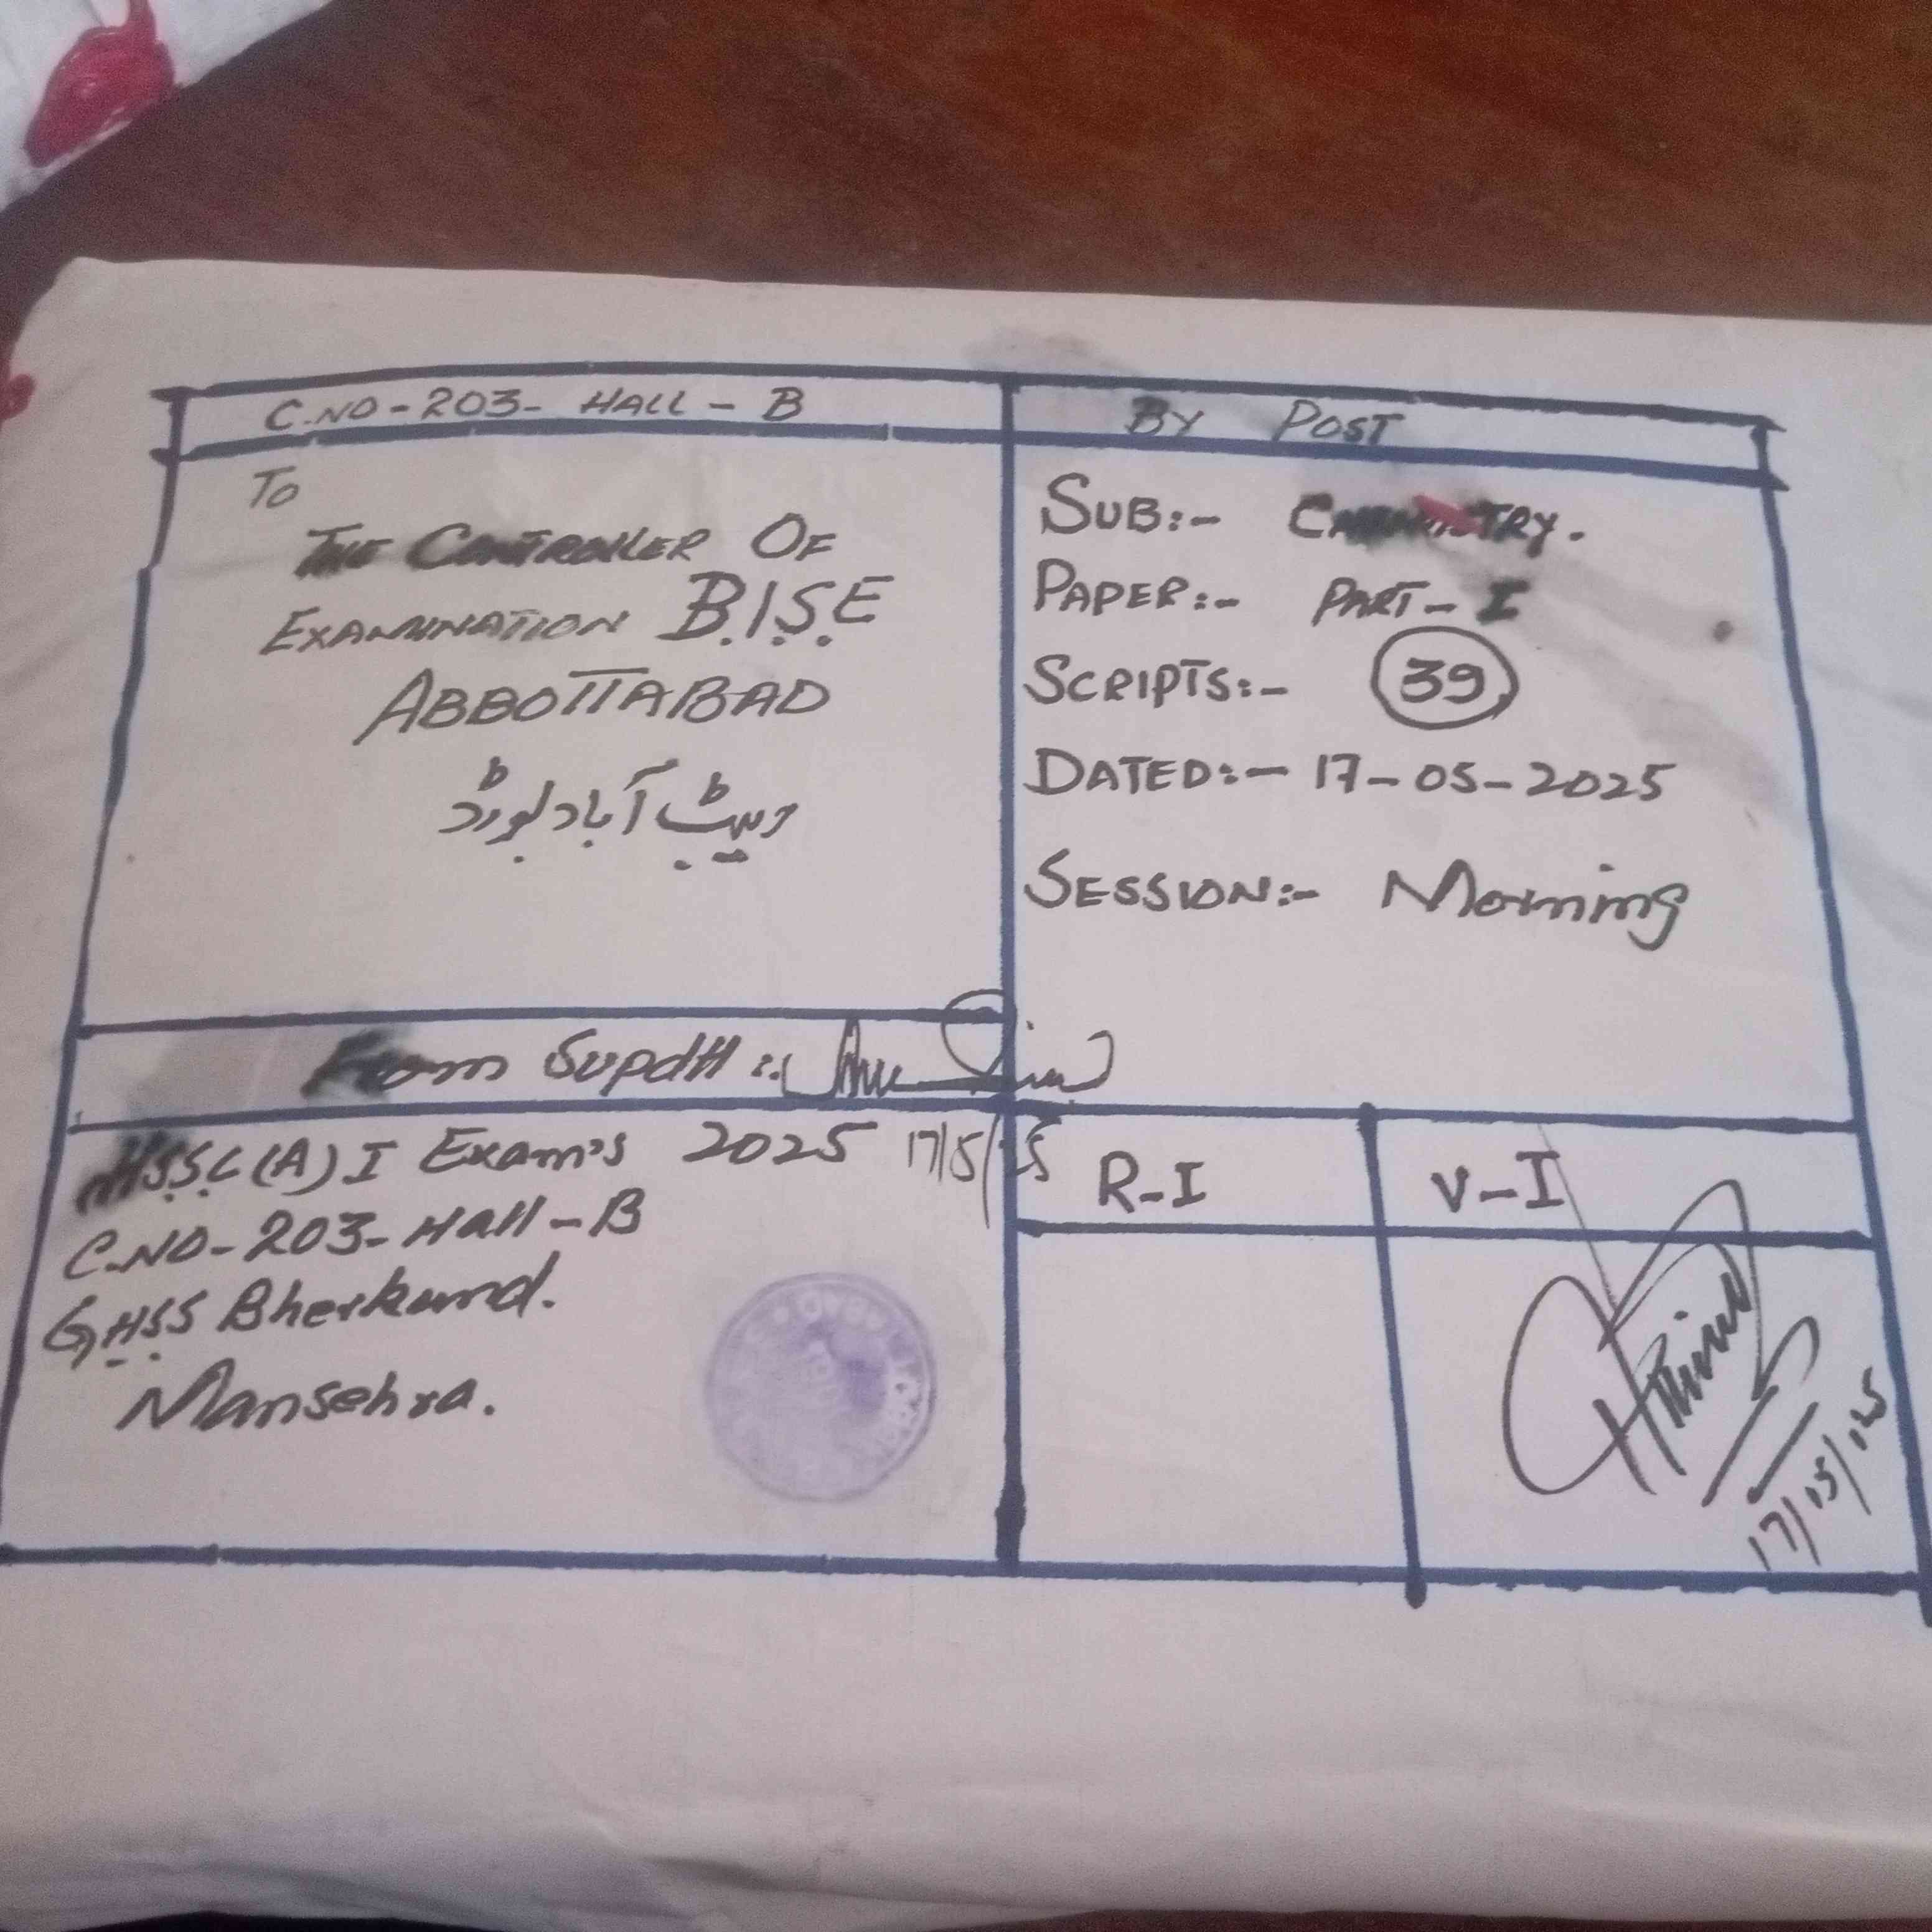 C.NO-203- HALL-B
BY POST
To
THE CONTROLLER OF
EXAMINATION B.I.S.E
ABBOTTABAD
ایبٹ آباد بورڈ
SUB:- CHEMISTRY.
PAPER:- PART-I
SCRIPTS:- 39
DATED:- 17-05-2025
SESSION:- Morning
From Supdtt:.
HSSC(A) I Exam's 2025 17/5/25
C.NO-203-Hall-B
GHSS Bherkund.
Mansehra.
R-I
V-I
17/05/25